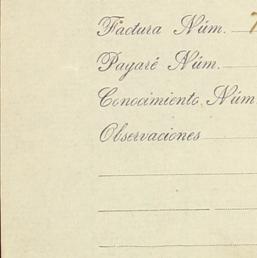 Factura Núm.
Pagaré Núm.
Conocimiento Núm.
Observaciones